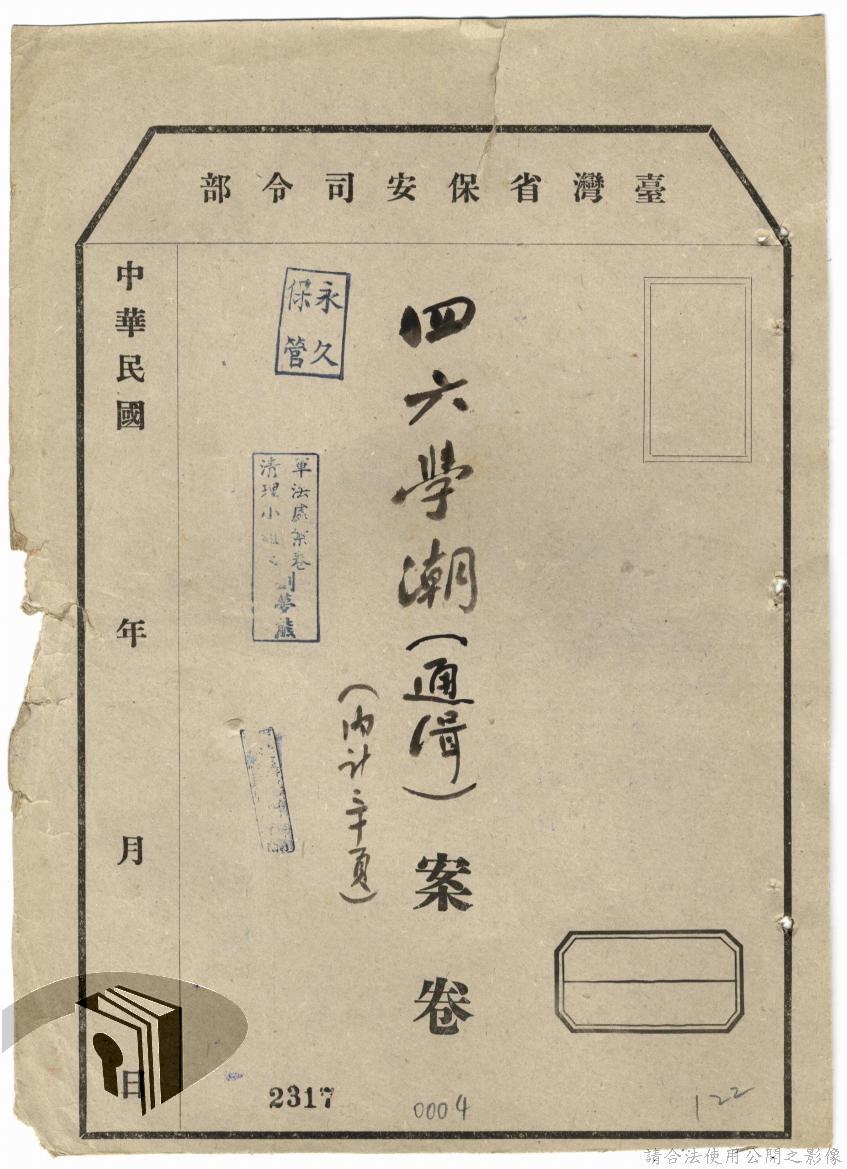 臺灣省保安司令部
四六學潮（通緝）案卷
永久
保管
軍法處案卷
清理小組
劉夢熊
中華民國 年 月 日
2317
0004
122
請合法使用公開之影像